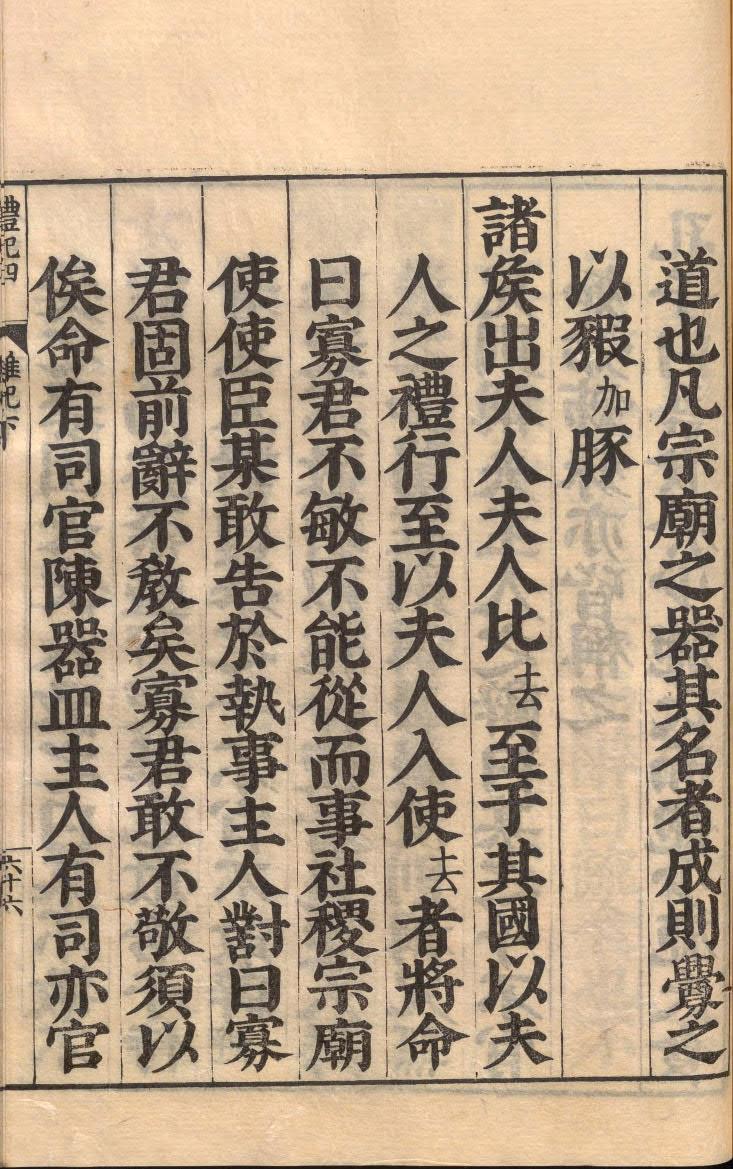 道也凡宗廟之器其名者成則釁之
以豭加豚
諸矦出夫人夫人比去至于其國以夫
人之禮行至以夫人入使去者將命
曰寡君不敏不能從而事社稷宗廟
使使臣某敢告於執事主人對曰寡
君固前辭不敎矣寡君敢不敬須以
俟命有司官陳器皿主人有司亦官
禮記四
雜記下
六十六